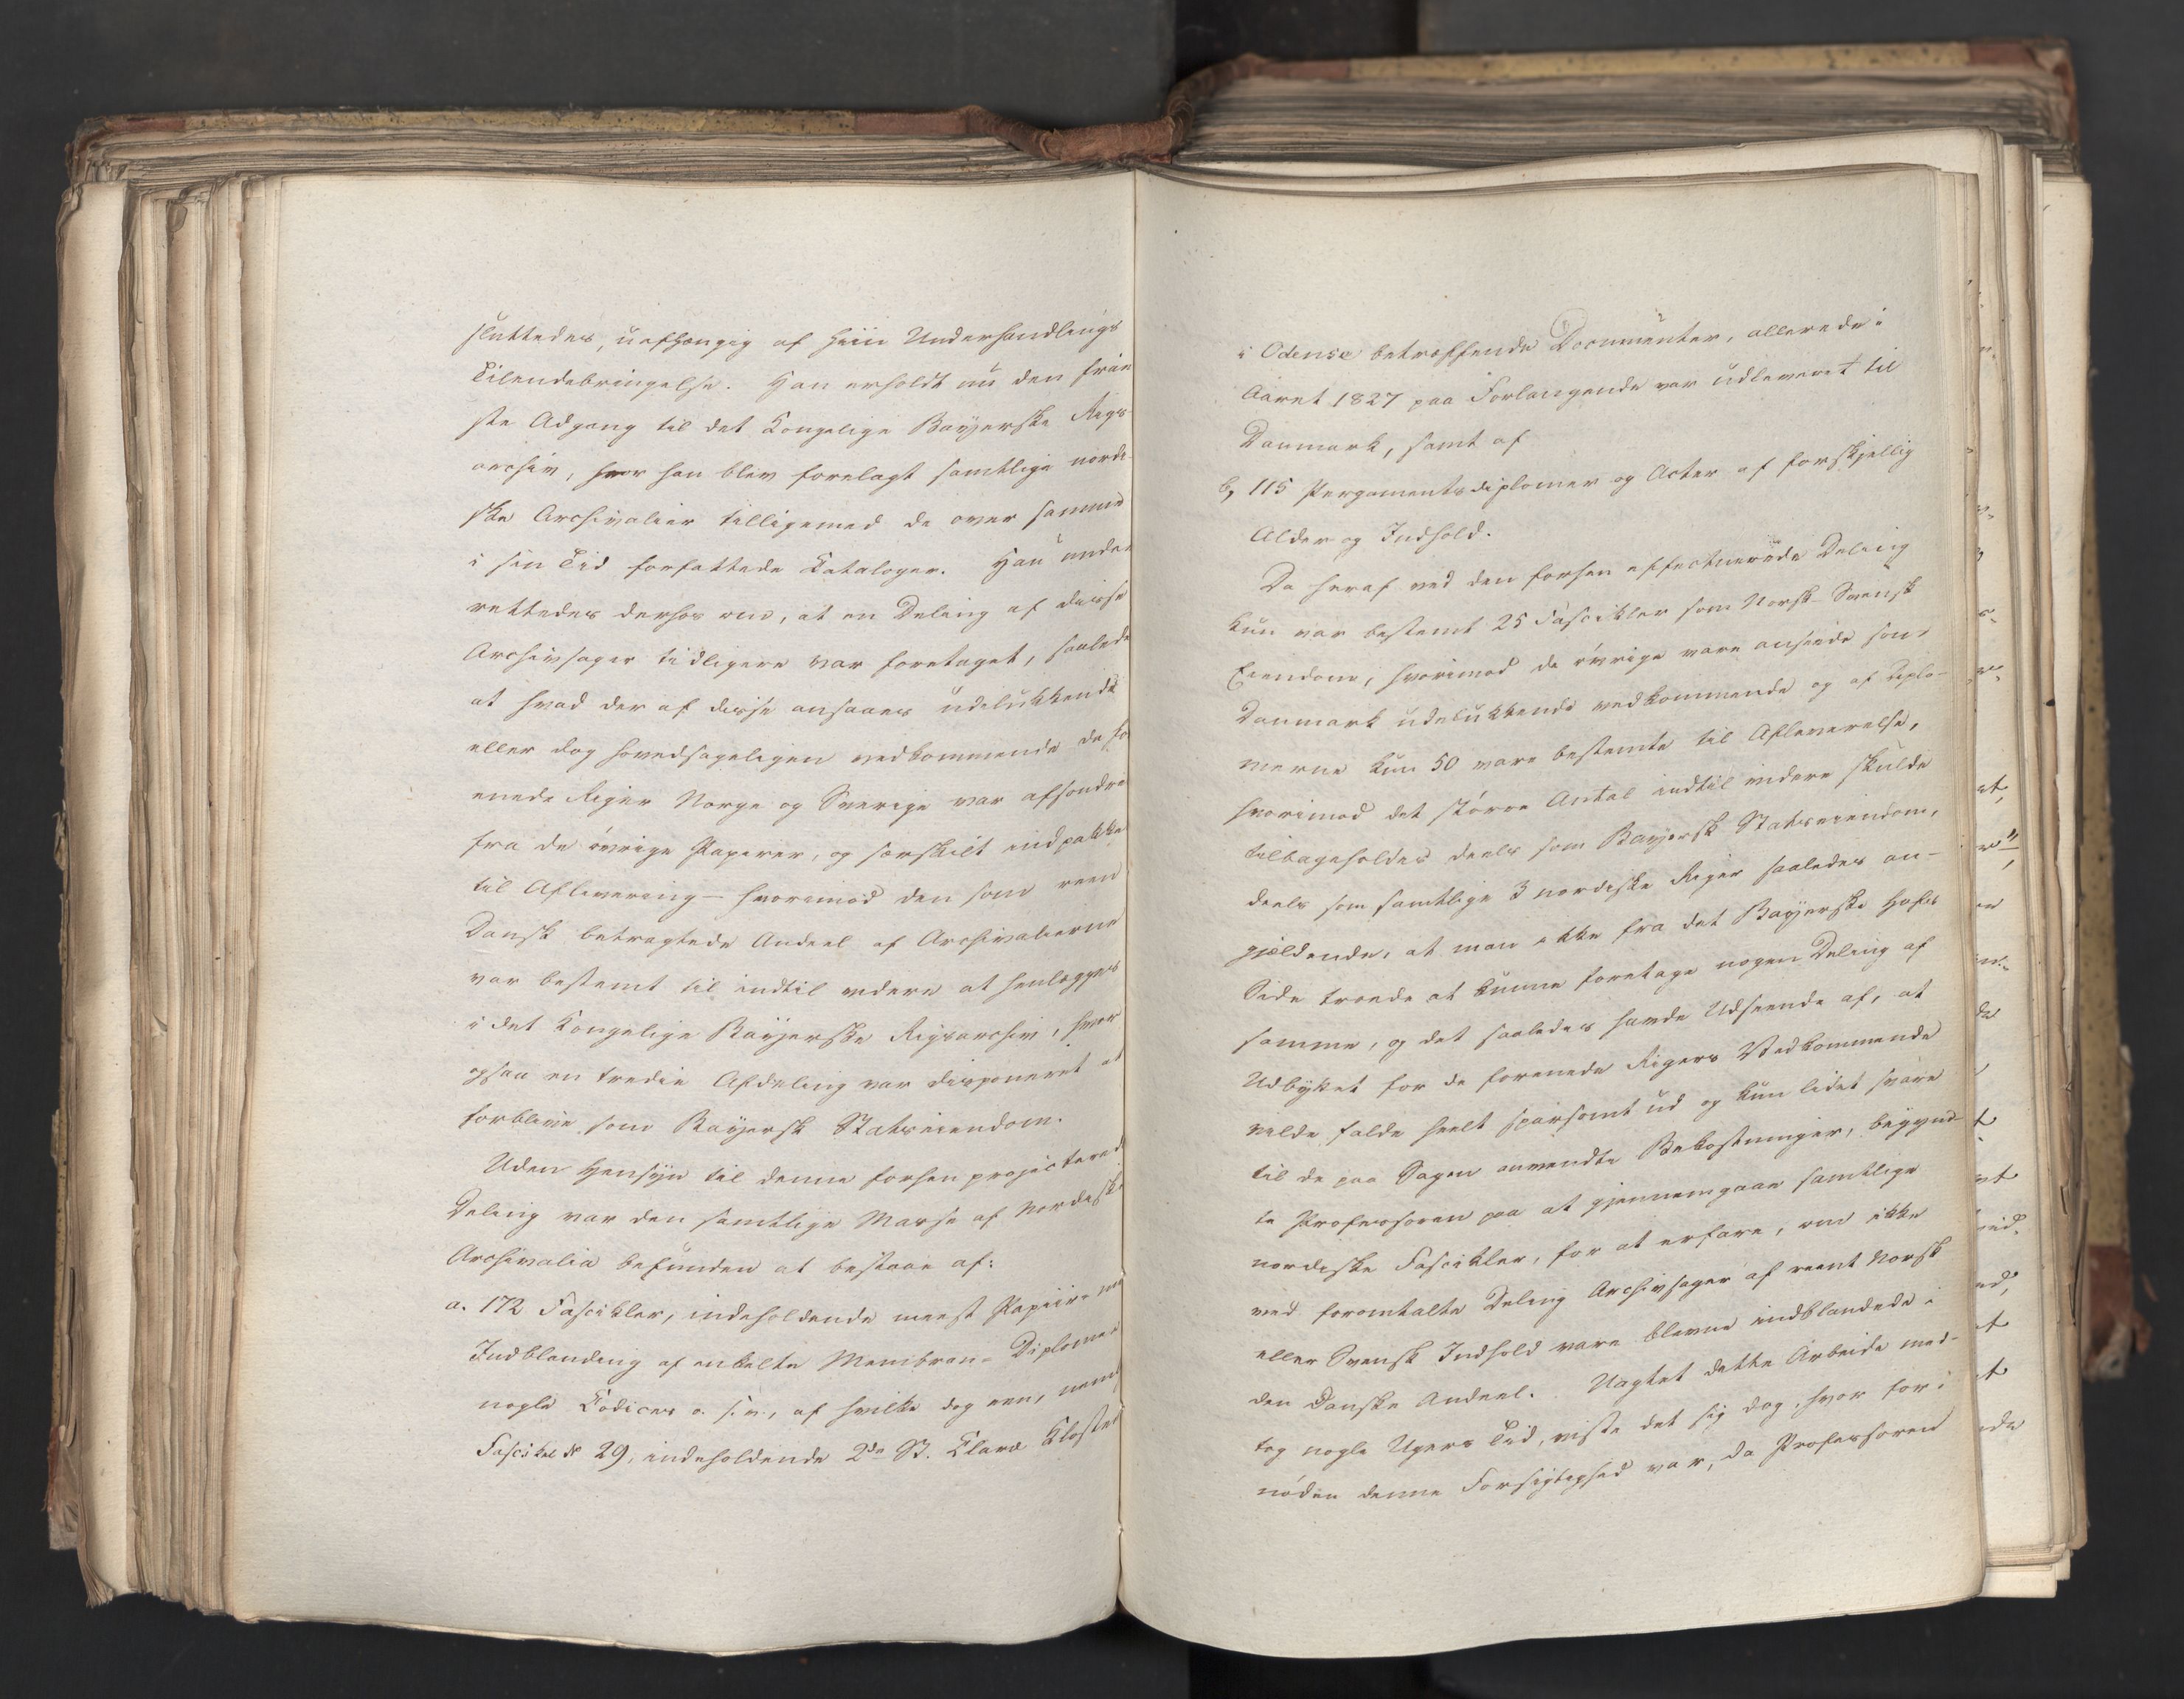 sluttedes, uafhængig af hiin Underhandlings
Tilendebringelse. Han erholdt nu den frie
ste Adgang til det Kongelige Bayerske Rigs-
archiv, hvor han blev forelagt samtlige nordi-
ske Archivalier tilligemed de over samme
i sin Tid forfattede Kataloger. Han under
rettedes derhos om, at en Deling af disse
Archivsager tidligere var foretaget, saalede
at hvad der af disse ansaaes udelukkende
eller dog hovedsageligen vedkommende de for
enede Riger Norge og Sverige var afsondre
fra de øvrige Papirer, og særskilt indpakke
til Aflevering – hvorimod den som reen
Dansk betragtede Andeel af Archivalierne
var bestemt til indtil videre at henlægges
i det Kongelige Bayerske Rigsarchiv, hvor
ogsaa en tredie Afdeling var disponeret at
forblive som Bayersk Statseiendom.
Uden Hensyn til denne forhen projectered
Deling var den samtlige Masse af Nordiske
Archivalia befunden at bestaae af:
a. 172 Fascikler, indeholdende meest Papiir- med
Indblanding af enkelte Membran- Diplomer
nogle Codices o. s. v., af hvilke dog een, neml
Fascikel № 29, indeholdende 2de St. Claræ Kloster
i Odense betræffende Documenter, allerede i
Aaret 1827 paa Forlangende var udleveret til
Danmark, samt af
b, 115 Pergamentsdiplomer og Acter af forskjellig
Alder og Indhold.
Da heraf ved den forhen effectuerede Deling
kun var bestemt 25 Fascikler som Norsk-Svensk
Eiendom, hvorimod de øvrige vare anseede som
Danmark udelukkende vedkommende og af Diplo-
merne kun 50 vare bestemte til Afleverelse,
hvorimod det større Antal indtil videre skulde
tilbageholdes deels som Bayersk Statseiendom,
deels som samtlige 3 nordiske Riger saaledes an-
gjældende, at man ikke fra det Bayerske Hofs
Side troede at kunne foretage nogen Deling af
samme, og det saaledes havde Udseende af, at
Udbyttet for de forenede Rigers Vedkommende
vilde falde heelt sparsomt ud og kun lidet svare
til de paa Sagen anvendte Bekostninger, begynd-
te Professoren paa at gjennemgaae samtlige
nordiske Fascikler, for at erfare, om ikke
ved foromtalte Deling Archivsager af reent Norsk
eller Svensk Indhold vare blevne indblandede i
den Danske Andeel. Uagtet dette Arbeide med-
tog nogle Ugers Tid, viste det sig dog, hvor for-
nøden denne Forsigtighed var, da Professoren